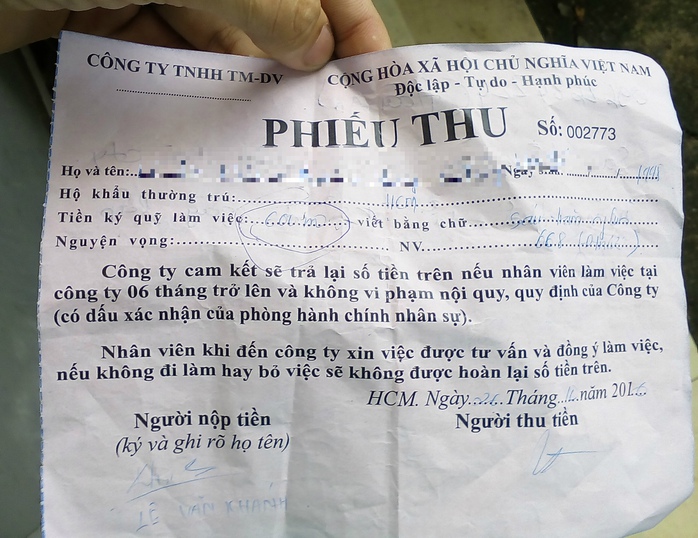 CÔNG TY TNHH TM-DV
CỘNG HÒA XÃ HỘI CHỦ NGHĨA VIỆT NAM
Độc lập - Tự do - Hạnh phúc
PHIẾU THU Số: 002773
Họ và tên: Ngày
Hộ khẩu thường trú: HCM
Tiền ký quỹ làm việc: viết bằng chữ
Nguyện vọng: NV.
Công ty cam kết sẽ trả lại số tiền trên nếu nhân viên làm việc tại
công ty 06 tháng trở lên và không vi phạm nội quy, quy định của Công ty
(có dấu xác nhận của phòng hành chính nhân sự).
Nhân viên khi đến công ty xin việc được tư vấn và đồng ý làm việc,
nếu không đi làm hay bỏ việc sẽ không được hoàn lại số tiền trên.
HCM. Ngày 26 Tháng năm 2016
Người nộp tiền
(ký và ghi rõ họ tên)
Người thu tiền
LÊ VĂN KHÁNH